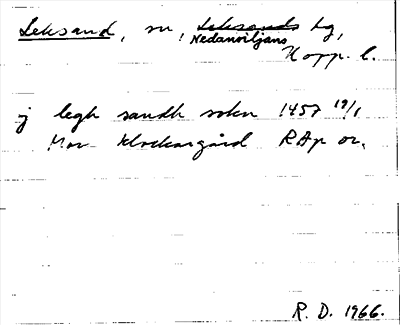 Leksand, sn, Leksands hg,
Nedansiljans
Kopp. l.
j legh sandh sokn 1457 19/1
Mor Klockargård RAp or.
R. D. 1966.